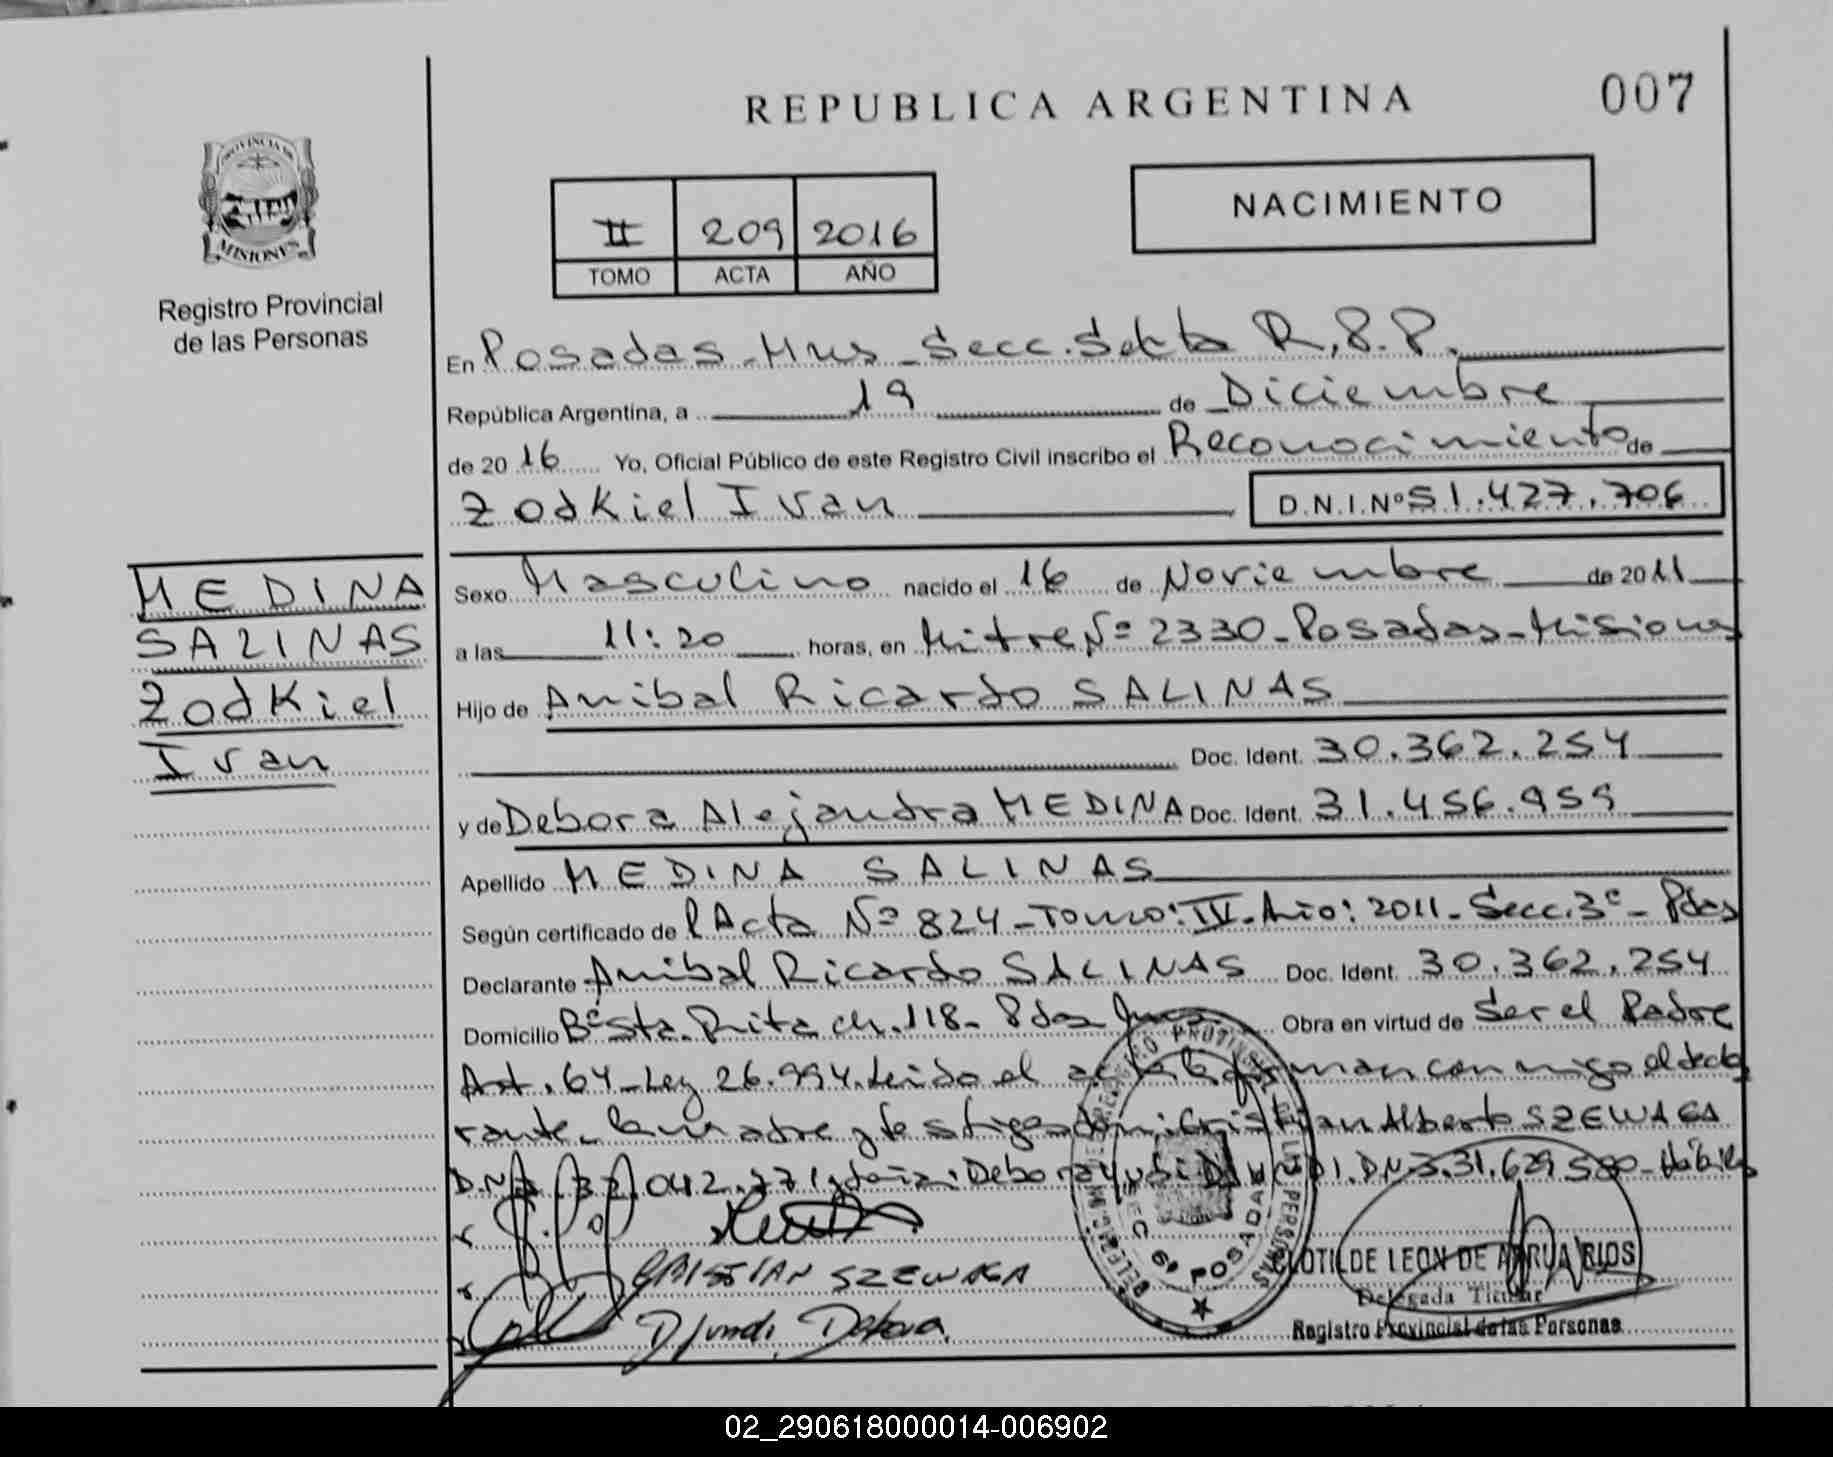 REPUBLICA ARGENTINA
007
PROVINCIA DE
MISIONES
Registro Provincial
de las Personas
NACIMIENTO
II 209 2016
TOMO ACTA AÑO
En Posadas-Mnes-Secc.Sexta R.P.P.
República Argentina, a 19 de Diciembre
de 2016 Yo, Oficial Público de este Registro Civil inscribo el Reconocimiento de
Zodkiel Ivan D.N.I.Nº 51.427.706
MEDINA
SALINAS
Zodkiel
Ivan
Sexo Masculino nacido el 16 de Noviembre de 2011
a las 11:20 horas, en Mitre Nº 2330-Posadas-Misiones
Hijo de Anibal Ricardo SALINAS
Doc. Ident. 30.362.254
y de Debora Alejandra MEDINA Doc. Ident. 31.456.959
Apellido MEDINA SALINAS
Según certificado de l Acta Nº 824-Tomo: IV-Año: 2011-Secc.3ª-Pdas
Declarante Anibal Ricardo SALINAS Doc. Ident. 30.362.254
Domicilio Bº Sta. Rita ch. 118- Pdas Mnes Obra en virtud de Ser el Padre
Art. 64-Ley 26.994. Leido el acta la firman conmigo el decla
rante, la madre y testigos Don: Cristian Alberto SZEWAGA
D.N.I. 32.042.771 y doña: Debora DJUNDI. D.N.I. 31.629.580-Hábiles
CRISTIAN SZEWAGA
Djundi Debora
SEC 6ª POSADAS
CLOTILDE LEON DE RIOS
Delegada Titular
Registro Provincial de las Personas
02_290618000014-006902